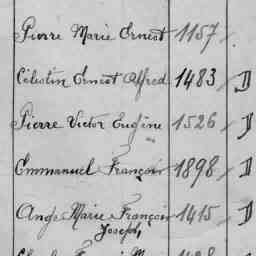 Pierre Marie Ernest 1157
Célestin Ernest Alfred 1483 D
Pierre Victor Eugène 1526 D
Emmanuel François 1898 D
Ange Marie François 1415 D
Joseph